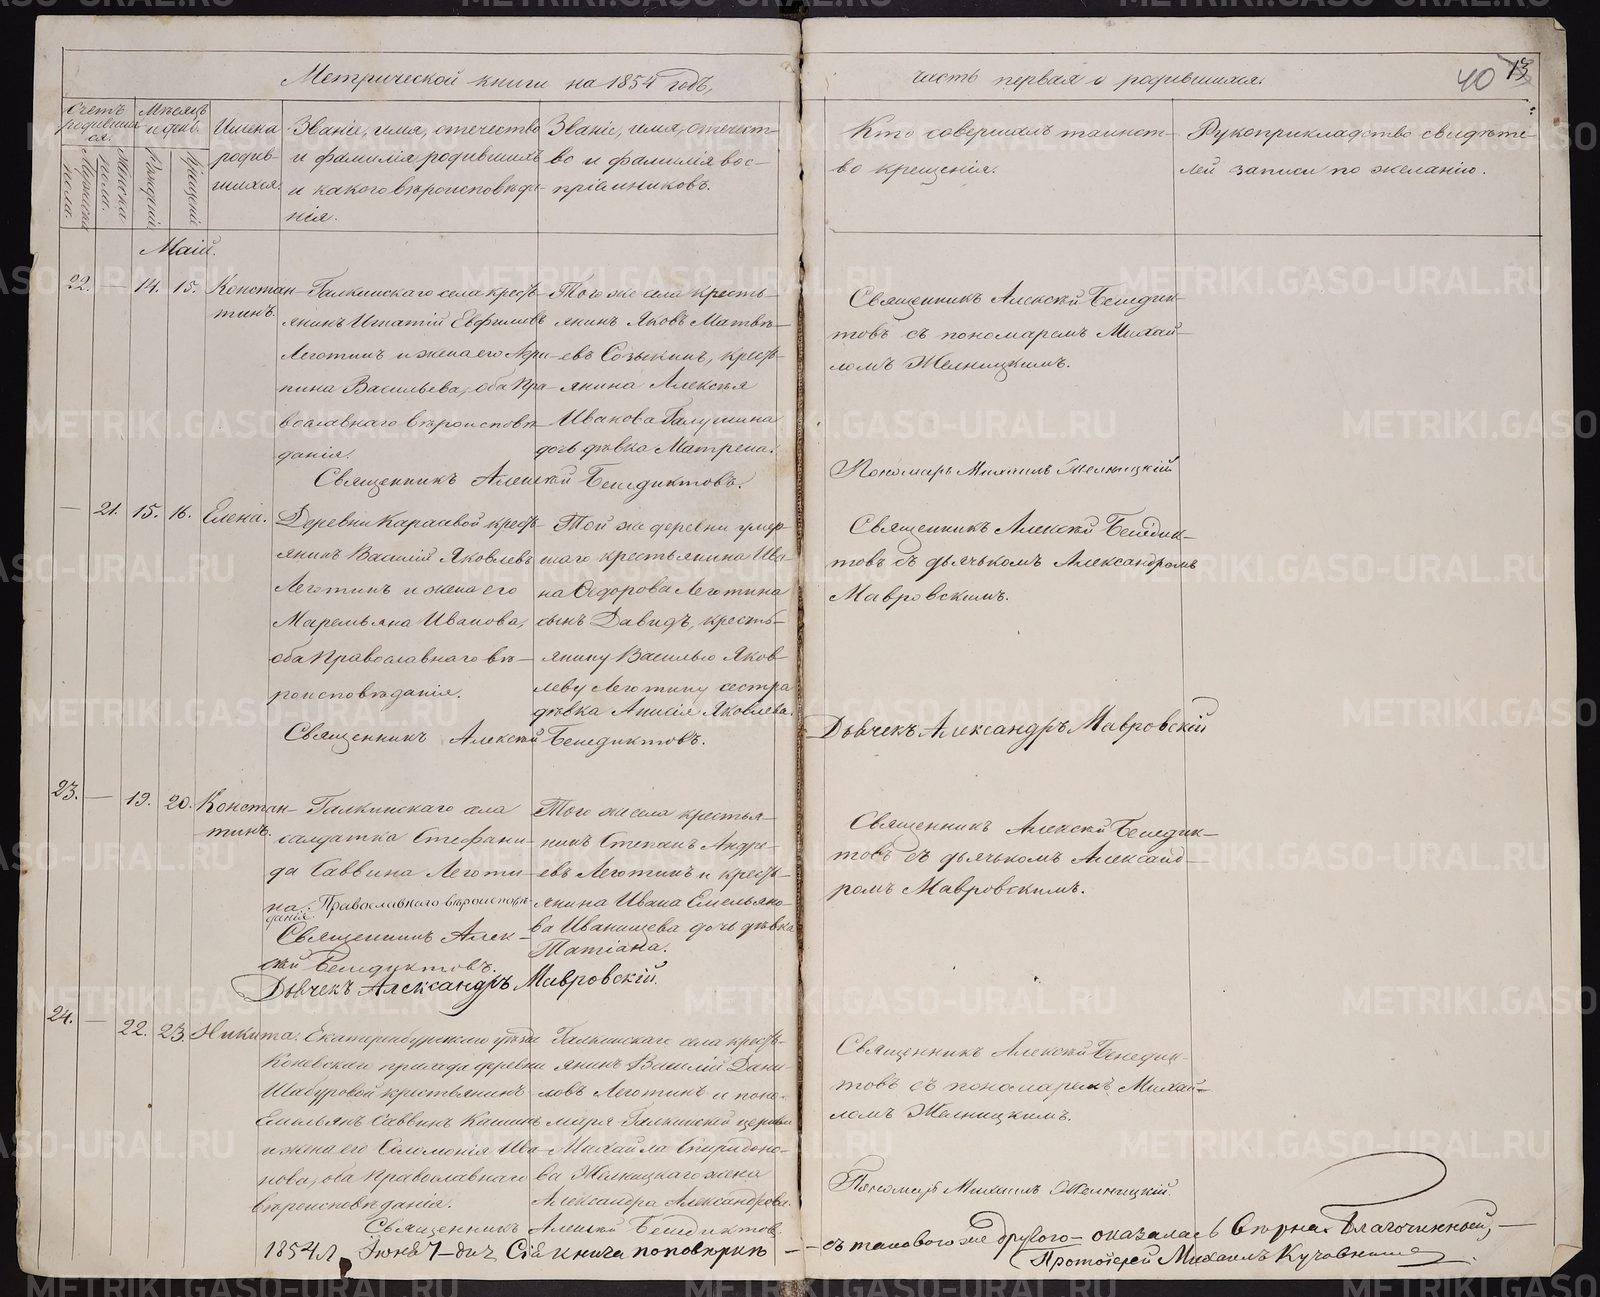 Метрической книги на 1854 годъ,
часть первая о родившихся.
40 13
Счетъ родивших ся.
Мѣсяцъ и день.
Имена родив- шихся.
Званіе, имя, отечество и фамилія родившихъ и какого вѣроисповѣда- нія.
Званіе, имя, отечест- во и фамилія вос- пріемниковъ.
Кто совершалъ таинст- во крещенія.
Рукоприкладство свидѣте- лей записи по желанію.
Мужска пола.
Женска пола.
Рожденія
Крещенія
Маій.
22. — 14. 15. Констан- тинъ.
Галкинскаго села кресть-
янинъ Игнатій Евфимовъ
Леготинъ и жена его Агри-
пина Васильева, оба пра-
вославнаго вѣроисповѣ-
данія.
Того же села кресть-
янинъ Яковъ Матвѣ-
евъ Созыкинъ, кресть-
янина Алексѣя
Иванова Галушина
дочь дѣвка Матрена.
Священникъ Алексѣй Бенедиктовъ.
Священникъ Алексѣй Бенедик-
товъ съ пономаремъ Михаи-
ломъ Желницкимъ.
Пономарь Михаилъ Желницкій
— 21. 15. 16. Елена.
Деревни Караевой кресть-
янинъ Василій Яковлевъ
Леготинъ и жена его
Маремьяна Иванова,
оба православнаго вѣ-
роисповѣданія.
Той же деревни умер-
шаго крестьянина Ива-
на Ѳедорова Леготина
сынъ Давидъ, кресть-
янину Василью Яков-
леву Леготину сестра
дѣвка Анисія Яковлева.
Священникъ Алексѣй Бенедиктовъ.
Священникъ Алексѣй Бенедик-
товъ съ дьячкомъ Александромъ
Мавровскимъ.
Дьячекъ Александръ Мавровскій
23. — 19. 20. Констан- тинъ.
Галкинскаго села
солдатка Стефани-
да Саввина Леготи-
на. Православнаго вѣроисповѣ-
данія.
Того же села крестья-
нинъ Степанъ Андре-
евъ Леготинъ и кресть-
янина Ивана Емельяно-
ва Иванищева дочь дѣвка
Татіана.
Священникъ Алек-
сѣй Бенедиктовъ.
Дьячекъ Александръ Мавровскій.
Священникъ Алексѣй Бенедик-
товъ съ дьячкомъ Александ-
ромъ Мавровскимъ.
24. — 22. 23. Никита.
Екатеринбургскаго уѣзда
Коневскаго прихода деревни
Шабуровой крестьянинъ
Емильянъ Саввинъ
и жена его Соломонія Ива-
нова, оба православнаго
вѣроисповѣданія.
Галкинскаго села кресть-
янинъ Василій Дани-
ловъ Леготинъ и поно-
маря Галкинской церкви
Михаила Спиридоно-
ва Желницкаго жена
Александра Александрова.
Священникъ Алексѣй Бенедиктовъ.
Священникъ Алексѣй Бенедик-
товъ съ пономаремъ Михаи-
ломъ Желницкимъ.
Пономарь Михаилъ Желницкій.
1854 Л. Іюня 7-дня Сія книга поповѣркѣ — съ таковою же другою — оказалась вѣрна. Благочинный,
Протоіерей Михаилъ
METRIKI.GASO-URAL.RU